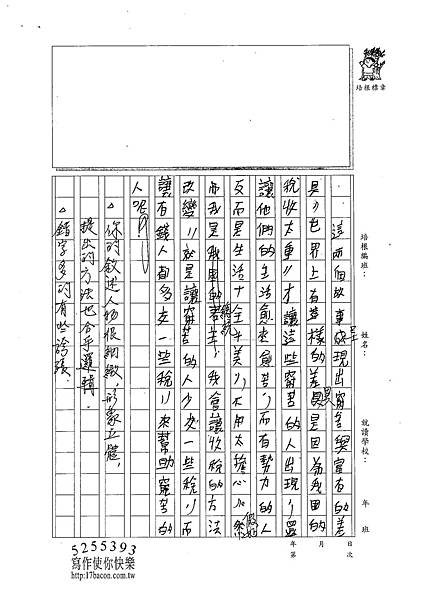 培根標章
培根編班：
姓名：
就讀學校：
年　班
年　月　日
第　次
這兩個故事呈現出窮苦與富有的差
異，世界上有這樣的差異是因為我國的
稅收太重，才讓這些窮苦的人出現，還
讓他們的生活愈來愈苦，而有勢力的人
反而是生活十全十美，不用太擔心，假如
我是我國的總統，我會讓收稅的方法
改變，就是讓窮苦的人少交一些稅，而
讓有錢人都多交一些稅，來幫助窮苦的
人呢！
△你的敘述人物很細緻，形象立體，
提出的方法也合乎邏輯．
△錯字多的有些誇張．
5255393
寫作使你快樂
http://17bacon.com.tw